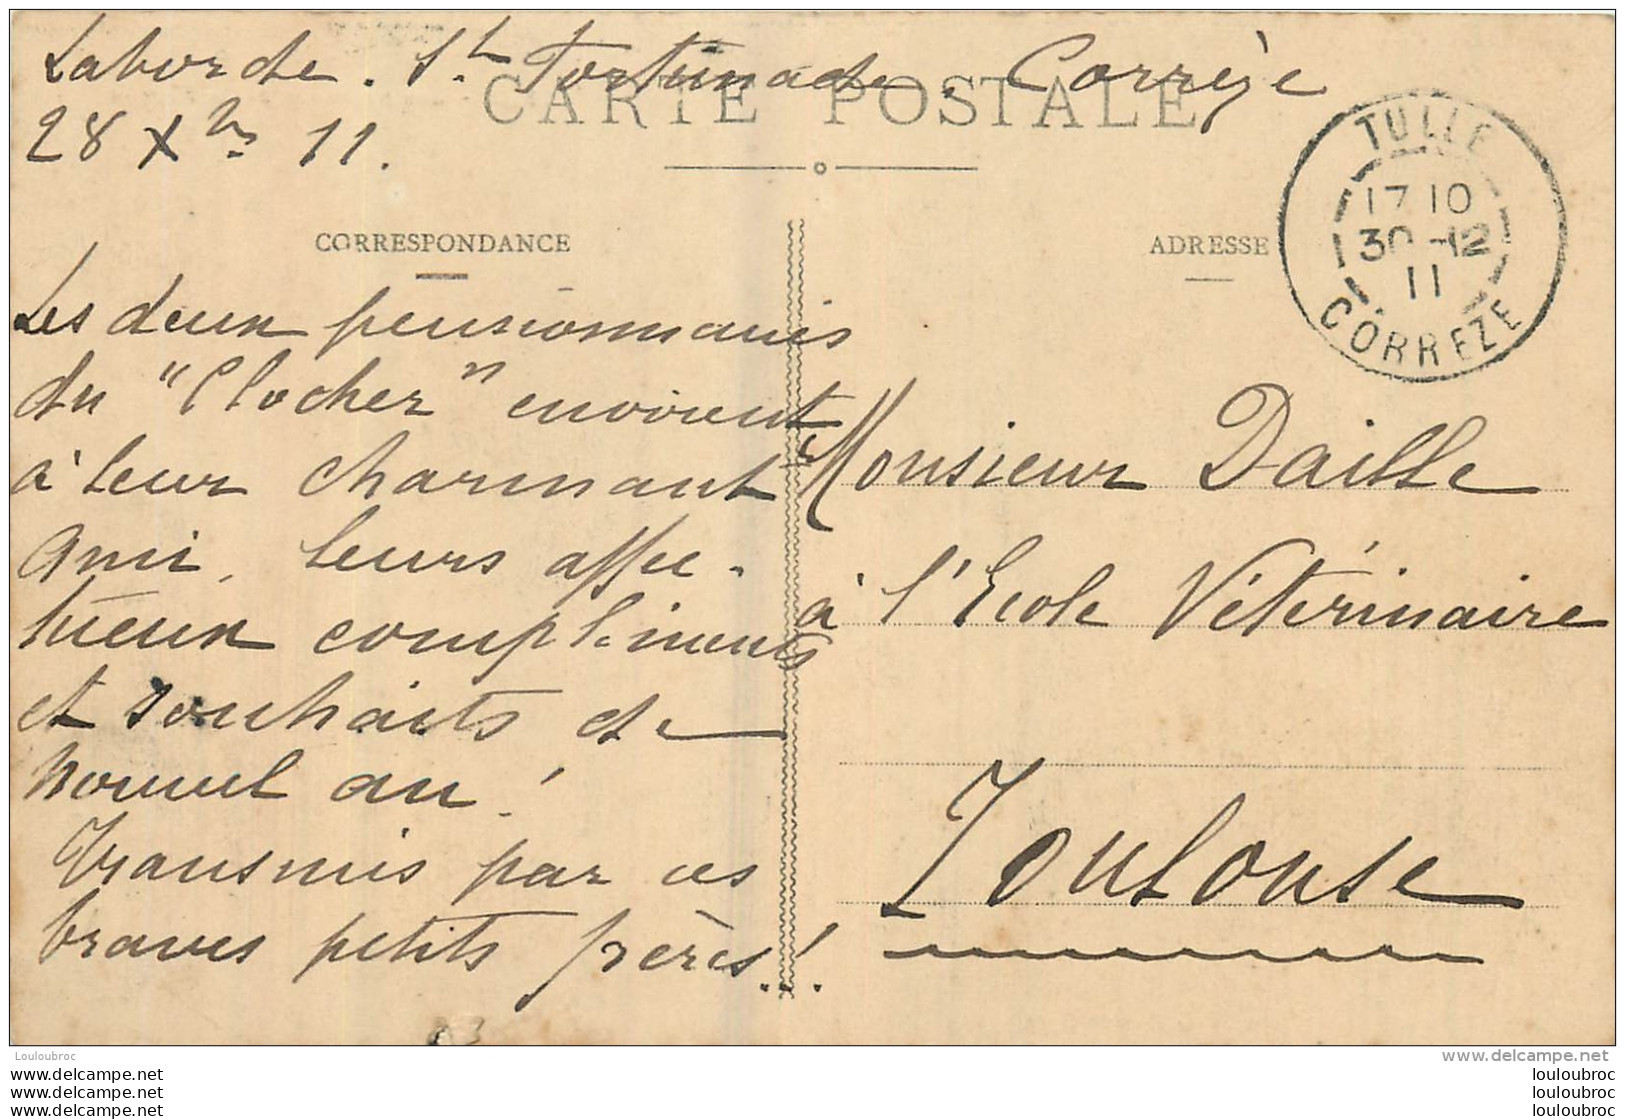 Laborde. St Fortunade. Corrèze
28 Xbre 11.
CARTE POSTALE
TULLE
17 10
30 -12
11
CORREZE
CORRESPONDANCE
ADRESSE
Les deux pensionnaires
du "Clocher" envoient
à leur charmant
Ami, leurs affec-
tueux compliments
et souhaits de
Nouvel an !
Transmis par ces
braves petits frères !.
Monsieur Daille
à l'Ecole Vétérinaire
Toulouse
Louloubroc
www.delcampe.net
www.delcampe.net
www.delcampe.net
www.delcampe.net
louloubroc
louloubroc
louloubroc